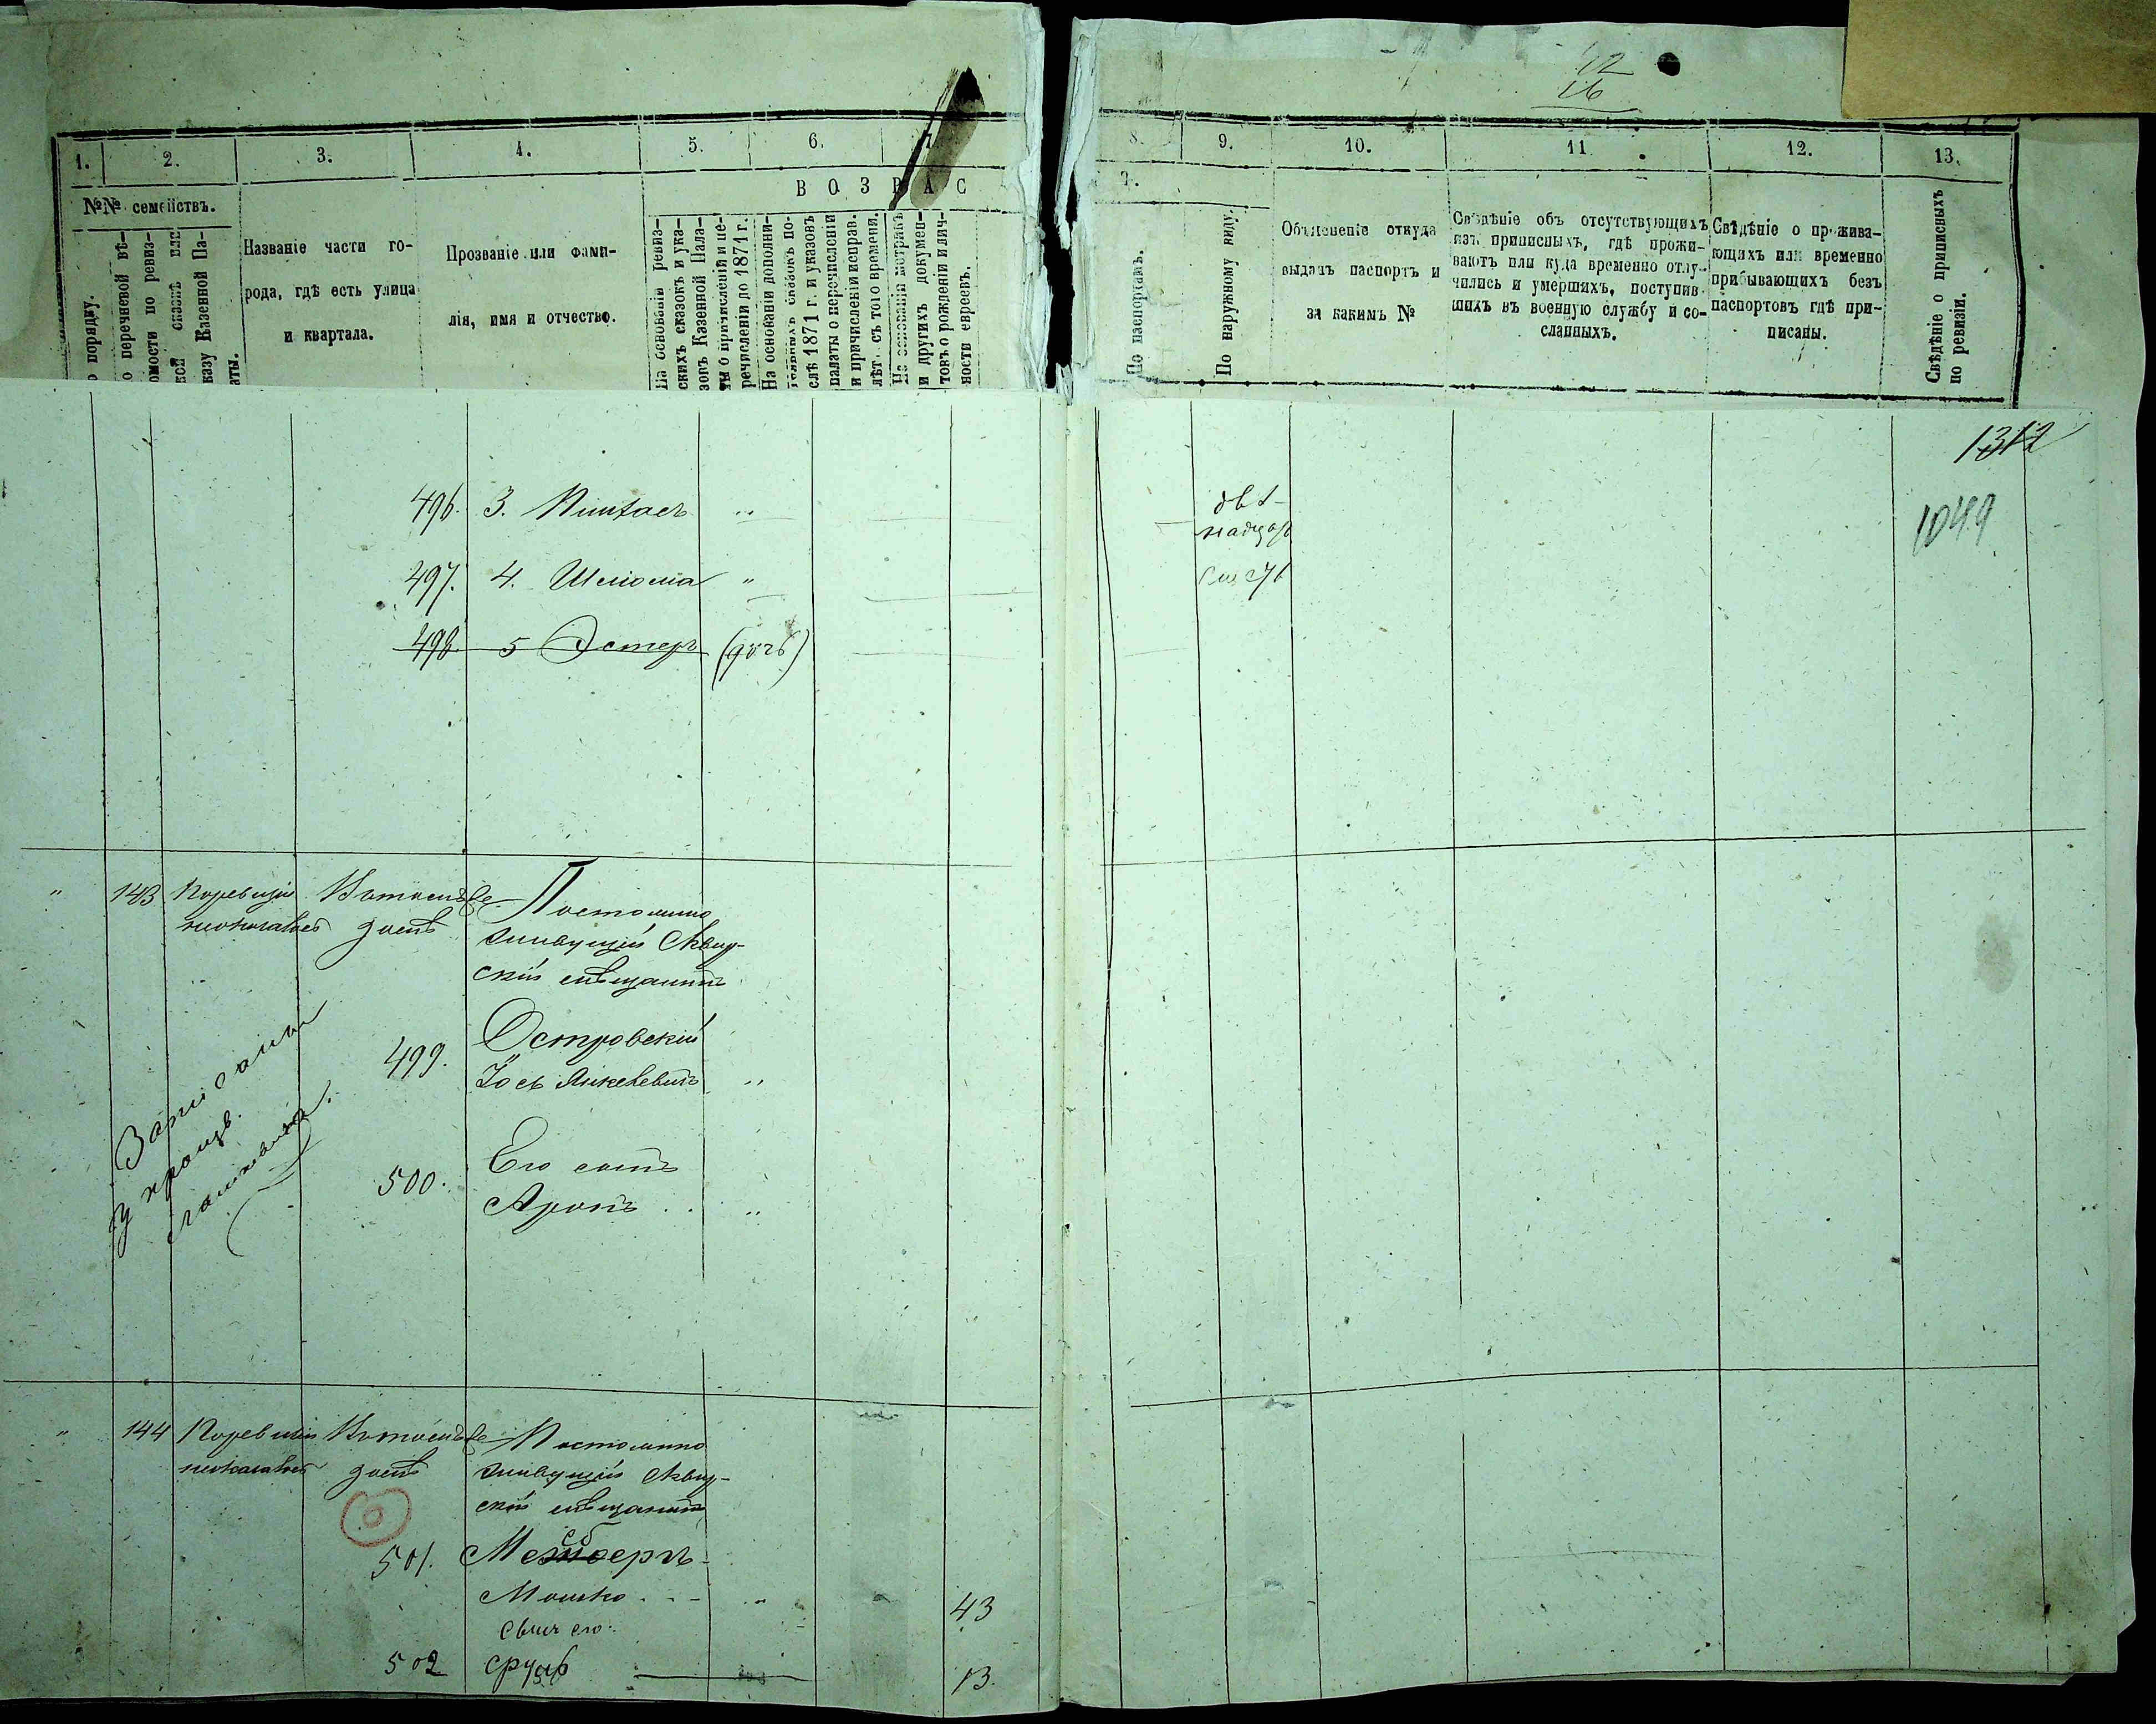 12
26
1. 2. 3. 4. 5. 6. 7.
№№ семействъ.
ВОЗРАС
о порядку.
о перечневой вѣ-
омости по ревиз-
казу Казенной Па-
аты.
Названіе части го-
рода, гдѣ есть улица
и квартала.
Прозваніе или фами-
лія, имя и отчество.
На основаніи ревиз-
скихъ сказокъ и ука-
зовъ Казенной Пала-
ты о причисленіи и пе-
речисленіи до 1871 г.
На основаніи дополни-
тельныхъ сказокъ по-
слѣ 1871 г. и указовъ
палаты о перечисленіи
и причисленіи исправ.
лѣтъ съ того времени.
На основаніи метрикъ
и другихъ докумен-
товъ о рожденіи и лич-
ности евреевъ.
8. 9. 10. 11 12. 13.
Т.
По паспортамъ.
По наружному виду.
Объясненіе откуда
выданъ паспортъ и
за какимъ №
Свѣдѣніе объ отсутствующихъ
изъ приписныхъ, гдѣ прожи-
ваютъ или куда временно отлу-
чились и умершихъ, поступив-
шихъ въ военную службу и со-
сланныхъ.
Свѣдѣніе о прожива-
ющихъ или временно
прибывающихъ безъ
паспортовъ гдѣ при-
писаны.
Свѣдѣніе о приписныхъ
по ревизіи.
1312
1049
496. 3. Пинхасъ "
двѣ-
надцать
497. 4. Шлиома "
498. 5 Эстеръ (дочь)
" 143 Поревизіи
непоказанъ
домѣ
Постоянно
живущій Сквир-
скій мѣщанинъ
499. Островскій
Іось Янкелевичъ "
500. Его сынъ
Аронъ . . "
Записаны
у
" 144 Поревизіи
непоказанъ
домѣ
Постоянно
живущій Сквир-
скій мѣщанинъ
501.
Мошко . - - " 43
сынъ его.
502 Сруль 13.